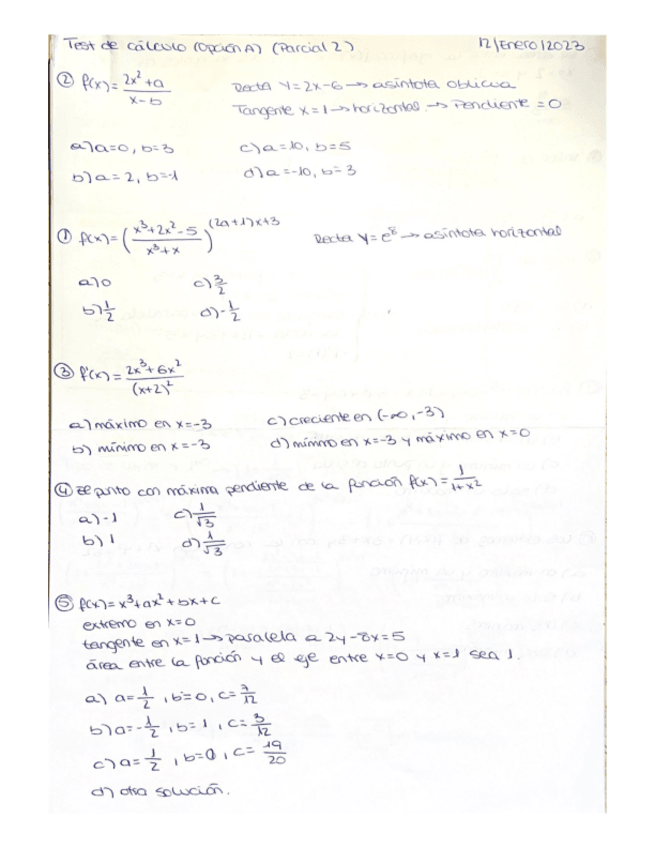 Test de cálculo (Opción A) (Parcial 2) 12/Enero/2023
② f(x) = (2x² + a)/(x - b) Recta y = 2x - 6 → asíntota oblicua
Tangente x = 1 → horizontal → Pendiente = 0
a) a = 0, b = 3 c) a = 10, b = 5
b) a = 2, b = -1 d) a = -10, b = 3
① f(x) = ((x³ + 2x² - 5)/(x³ + x))^((2a+1)x+3) Recta y = e⁸ → asíntota horizontal
a) 0 c) 3/2
b) 1/2 d) -1/2
③ f'(x) = (2x³ + 6x²)/(x+2)²
a) máximo en x = -3 c) creciente en (-∞, -3)
b) mínimo en x = -3 d) mínimo en x = -3 y máximo en x = 0
④ El punto con máxima pendiente de la función f(x) = 1/(1 + x²)
a) -1 c) 1/√3
b) 1 d) 1/√3
⑤ f(x) = x³ + ax² + bx + c
extremo en x = 0
tangente en x = 1 → paralela a 2y - 8x = 5
área entre la función y el eje entre x = 0 y x = 1 sea 1.
a) a = 1/2, b = 0, c = 7/12
b) a = -1/2, b = 1, c = 3/12
c) a = 1/2, b = 0, c = 19/20
d) otra solución.